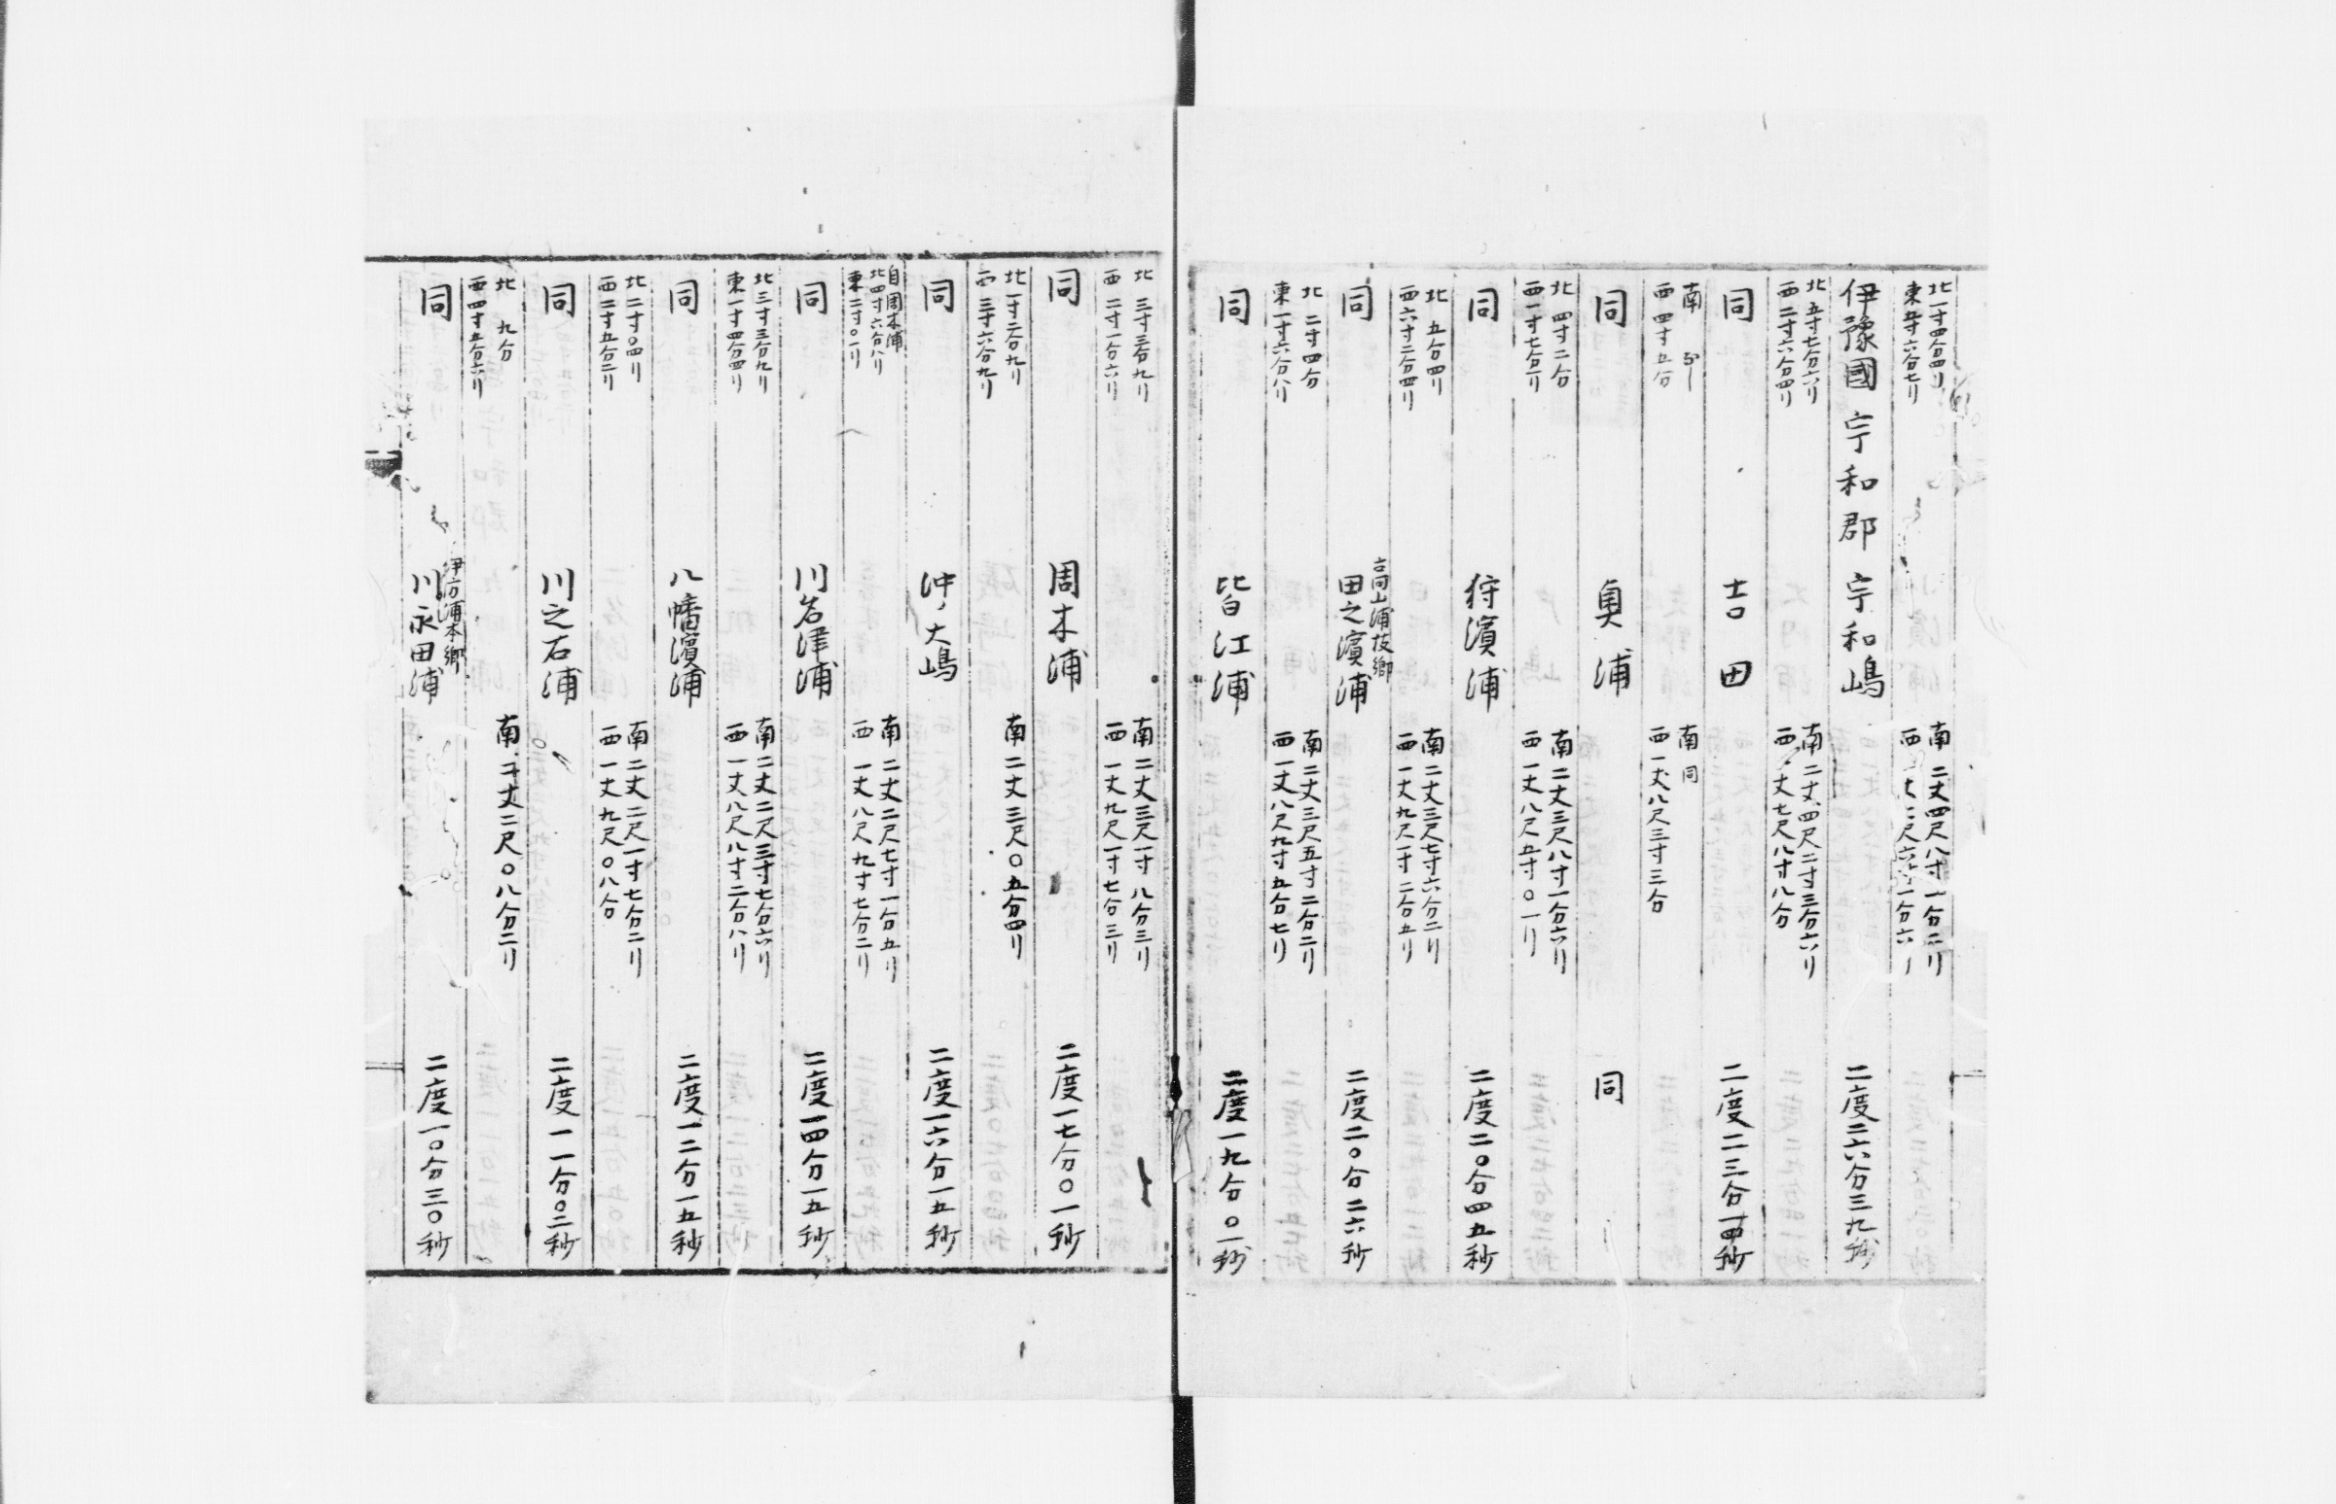 北一寸四分四リ
東五寸六分七リ
南 二丈四尺八寸一分二リ
西
伊豫國 宇和郡 宇和嶋 二度二六分三九秒
北五寸七分六リ
西二寸六分四リ
南 二丈四尺二寸三分六リ
西 一丈七尺八寸八分
同 吉田 二度二三分一四秒
南
西四寸五分
南同
西一丈八尺三寸三分
同 奥浦 同
北四寸二分
西一寸七分一リ
南二丈三尺八寸一分六リ
西一丈八尺五寸〇一リ
同 狩濱浦 二度二〇分四五秒
北五分四リ
西六寸二分四リ
南二丈三尺七寸六分二リ
西一丈九尺一寸二分五リ
高山浦枝郷
同 田之濱浦 二度二〇分二六秒
北二寸四分
東一寸六分八リ
南二丈三尺五寸二分二リ
西一丈八尺九寸五分七リ
同 皆江浦 二度一九分〇一秒
北三寸三分九リ
西二寸一分六リ
南二丈三尺一寸八分三リ
西一丈九尺一寸七分三リ
同 周木浦 二度一七分〇一秒
北一寸二分九リ
西三寸六分九リ
南二丈三尺〇五分四リ
同 沖ノ大嶋 二度一六分一五秒
自周木浦
北四寸六分八リ
東二寸〇一リ
南二丈二尺七寸一分五リ
西一丈八尺九寸七分二リ
同 川名津浦 二度一四分一五秒
北三寸三分九リ
東一寸四分四リ
南二丈二尺三寸七分六リ
西一丈八尺八寸二分八リ
同 八幡濱浦 二度一二分一五秒
北二寸〇四リ
西二寸五分二リ
南二丈二尺一寸七分二リ
西一丈九尺〇八分
同 川之石浦 二度一一分〇三秒
北九分
西四寸五分六リ
南二丈二尺〇八分二リ
伊方浦本郷
同 川永田浦 二度一〇分三〇秒